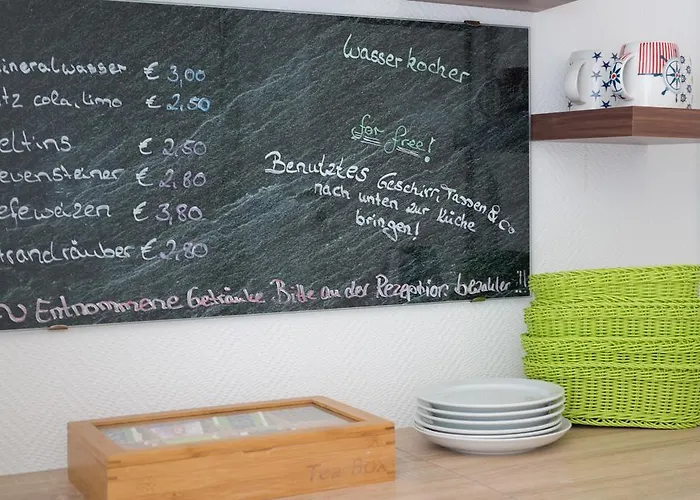 ineralwasser € 3,00
itz cola, limo € 2,50
eltins € 2,50
evensteiner € 2,80
efeweizen € 3,80
trandräuber € 2,80
Wasserkocher
for free!
Benutztes Geschirr, Tassen & Co
nach unten zur Küche
bringen!
Entnommene Getränke Bitte an der Rezeption bezahlen!!
Tea Box